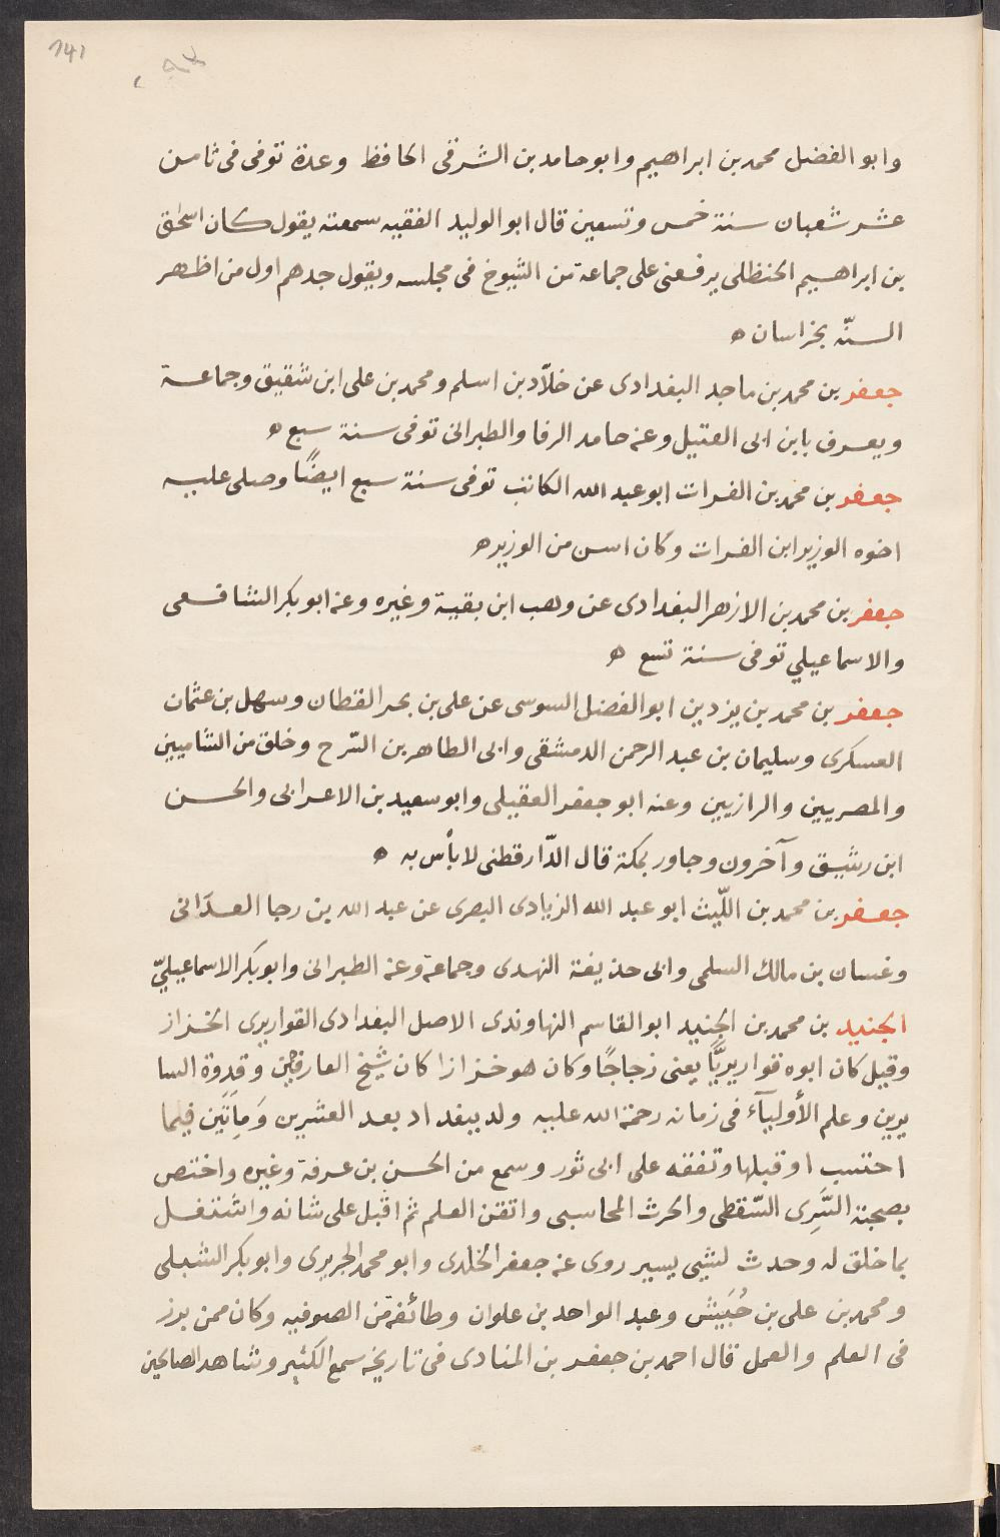 141
وابو الفضل محمد بن ابراهيم وابو حامد بن الشرقى الحافظ وعدة توفى فى ثامن
عشر شعبان سنة خمس وتسعين قال ابو الوليد الفقيه سمعته يقول كان اسحٰق
بن ابراهيم الحنظلى يرفعنى على جماعة من الشيوخ فى مجلسه ويقول جدهم اول من اظهر
السنّه بخراسان ه
جعفر بن محمد بن ماجد البغدادى عن خلاّد بن اسلم ومحمد بن على ابن شقيق وجماعة
ويعرف بابن ابى القتيل وعنه حامد الرفا والطبرانى توفى سنة سبع ه
جعفر بن محمد بن الفرات ابو عبد الله الكاتب توفى سنة سبع ايضًا وصلى عليه
اخوه الوزير ابن الفرات وكان اسن من الوزير ه
جعفر بن محمد بن الازهر البغدادى عن وهب ابن بقية وغيره وعنه ابو بكر الشافعى
والاسماعيلي توفى سنة تسع ه
جعفر بن محمد بن يزدين ابو الفضل السوسى عن على بن بحر القطان وسهل بن عثمان
العسكرى وسليمان بن عبد الرحمن الدمشقى وابى الطاهر بن السّرح وخلق من الشاميين
والمصريين والرازيين وعنه ابو جعفر العقيلى وابو سعيد بن الاعرابى والحسن
ابن رشيق وآخرون وجاور بمكة قال الدّارقطنى لا بأس به ه
جعفر بن محمد بن اللّيث ابو عبد الله الزيادى البصرى عن عبد الله بن رجا الغدَانى
وغسان بن مالك السلمى وابى حذيفة النهدى وجماعة وعنه الطبرانى وابو بكر الاسماعيليّ
الجنيد بن محمد بن الجنيد ابو القاسم النهاوندى الاصل البغدادى القواريرى الخزاز
وقيل كان ابوه قواريريًّا يعنى زجاجًا وكان هو خزازا كان شيخ العارفين وقدوة السا
يرين وعلم الأولياۤء فى زمانه رحمة الله عليه ولد ببغداد بعد العشرين وَمِاَتَين فيما
احتسب او قبلها وتفقه على ابى ثور وسمع من الحسن بن عرفة وغيره واختص
بصحبة السَّرِى السّقطى والحرث المحاسبى واتقن العلم ثم اقبل على شانه واشتغل
بما خلق له وحدث لشيى يسير روى عنه جعفر الخلدى وابو محمد الجريرى وابو بكر الشبلى
ومحمد بن على بن حُبَيش وعبد الواحد بن علوان وطائفة من الصوفيه وكان ممن برز
فى العلم والعمل قال احمد بن جعفر بن المنادى فى تاريخه سمع الكثير وشاهد الصالحين